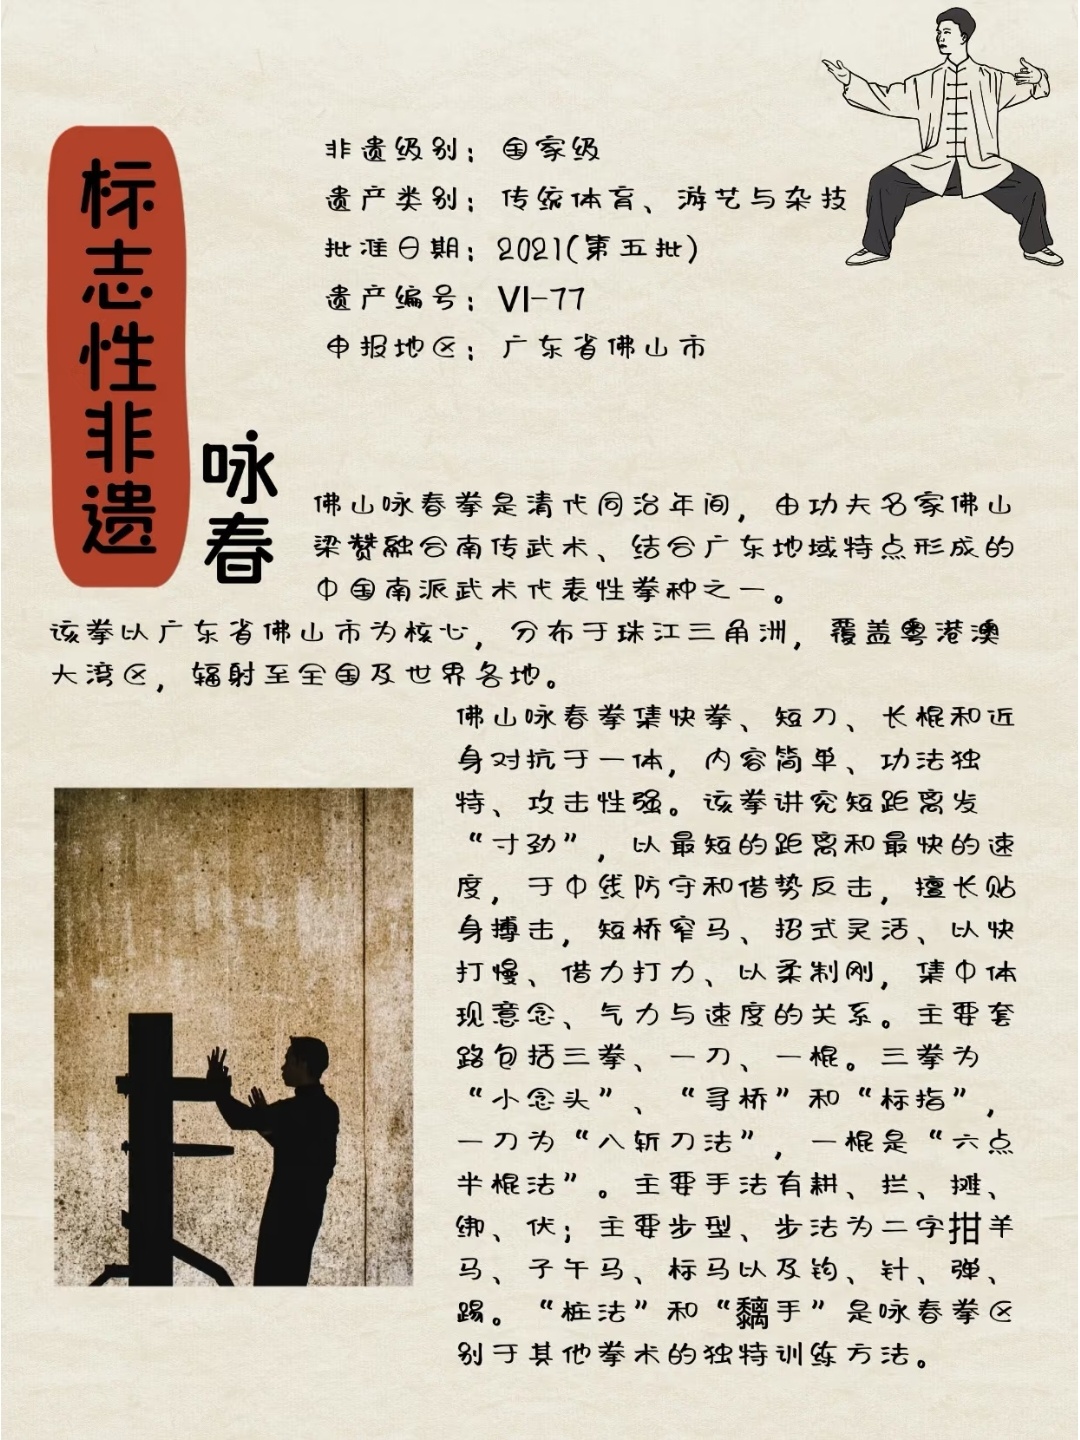 标志性非遗
咏春
非遗级别：国家级
遗产类别：传统体育、游艺与杂技
批准日期：2021(第五批)
遗产编号：Ⅵ-77
申报地区：广东省佛山市
佛山咏春拳是清代同治年间，由功夫名家佛山
梁赞融合南传武术、结合广东地域特点形成的
中国南派武术代表性拳种之一。
该拳以广东省佛山市为核心，分布于珠江三角洲，覆盖粤港澳
大湾区，辐射至全国及世界各地。
佛山咏春拳集快拳、短刀、长棍和近
身对抗于一体，内容简单、功法独
特、攻击性强。该拳讲究短距离发
“寸劲”，以最短的距离和最快的速
度，于中线防守和借势反击，擅长贴
身搏击，短桥窄马、招式灵活、以快
打慢、借力打力、以柔制刚，集中体
现意念、气力与速度的关系。主要套
路包括三拳、一刀、一棍。三拳为
“小念头”、“寻桥”和“标指”，
一刀为“八斩刀法”，一棍是“六点
半棍法”。主要手法有耕、拦、摊、
绑、伏；主要步型、步法为二字拑羊
马、子午马、标马以及钩、针、弹、
踢。“桩法”和“黐手”是咏春拳区
别于其他拳术的独特训练方法。